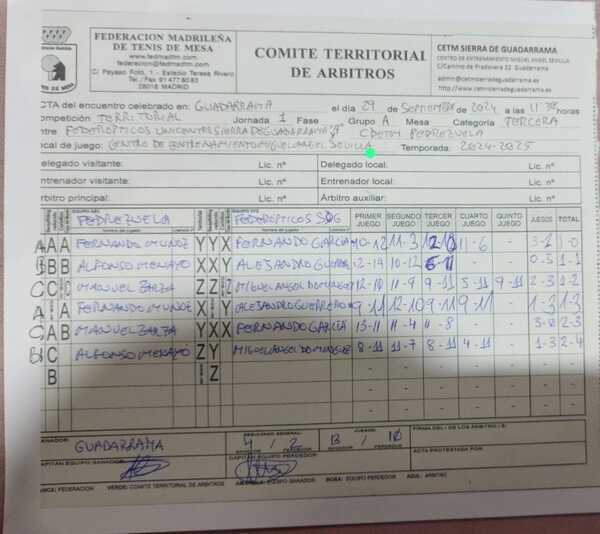 FEDERACION MADRILEÑA
DE TENIS DE MESA
www.fedmadtm.com
fedmadtm@fedmadtm.com
C/ Payaso Fofó, 1 - Estadio Teresa Rivero
Tel./Fax 91 477 80 83
28018 - MADRID
COMITE TERRITORIAL
DE ARBITROS
CETM SIERRA DE GUADARRAMA
CENTRO DE ENTRENAMIENTO MIGUEL ANGEL SEVILLA
C/Camino de Pradovera 32 Guadarrama
admin@cetmsierradeguadarrama.es
www.cetmsierradeguadarrama.es
CTA del encuentro celebrado en: GUADARRAMA el día 29 de SEPTIEMBRE de 2024 a las 11:30 horas
ompetición TERRITORIAL Jornada 1 Fase Grupo A Mesa Categoría TERCERA
entre FEDEROPTICOS UNICENTRSIERRADEGUADARRAMA "A" CDETM PEDREZUELA
ocal de juego: CENTRO DE ENTRENAMIENTO MIGUEL ANGEL SEVILLA Temporada: 2024-2025
elegado visitante: Lic. nº Delegado local: Lic. nº
ntrenador visitante: Lic. nº Entrenador local: Lic. nº
rbitro principal: Lic. nº Árbitro auxiliar: Lic. nº
PEDREZUELA FEDEROPTICOS SDG PRIMER JUEGO SEGUNDO JUEGO TERCER JUEGO CUARTO JUEGO QUINTO JUEGO JUEGOS TOTAL
A A A FERNANDO MUÑOZ Y Y X FERNANDO GARCIA 10-12 11-3 11-6 - 1-0
B B B ALFONSO MENAYO X X Y ALEJANDRO 12-14 10-12 - - 0-3 1-1
C C MANUEL ZARZA Z Z MIGUEL ANGEL DOMINGUEZ 12-10 11-9 9-11 5-11 9-11 2-3 1-2
A A FERNANDO MUÑOZ X Y ALEJANDRO GUERRERO 9-11 12-10 9-11 9-11 - 1-3 1-3
C A B MANUEL ZARZA Y X X FERNANDO GARCIA 13-11 11-4 11-8 - - 3-0 2-3
B C ALFONSO MENAYO Z Y MIGUEL ANGEL DOMINGUEZ 8-11 11-7 8-11 4-11 - 1-3 2-4
B Z - - - - - - -
ANADOR: GUADARRAMA RESULTADO GENERAL: 4 / 2 GANADOR PERDEDOR JUEGOS: 13 / 10 GANADOR PERDEDOR FIRMA DEL / DE LOS ÁRBITRO / S:
CAPITÁN EQUIPO GANADOR CAPITÁN EQUIPO PERDEDOR ACTA PROTESTADA POR:
ANCA: FEDERACION VERDE: COMITE TERRITORIAL DE ARBITROS AMARILLA: EQUIPO GANADOR ROSA: EQUIPO PERDEDOR AZUL: ARBITRO